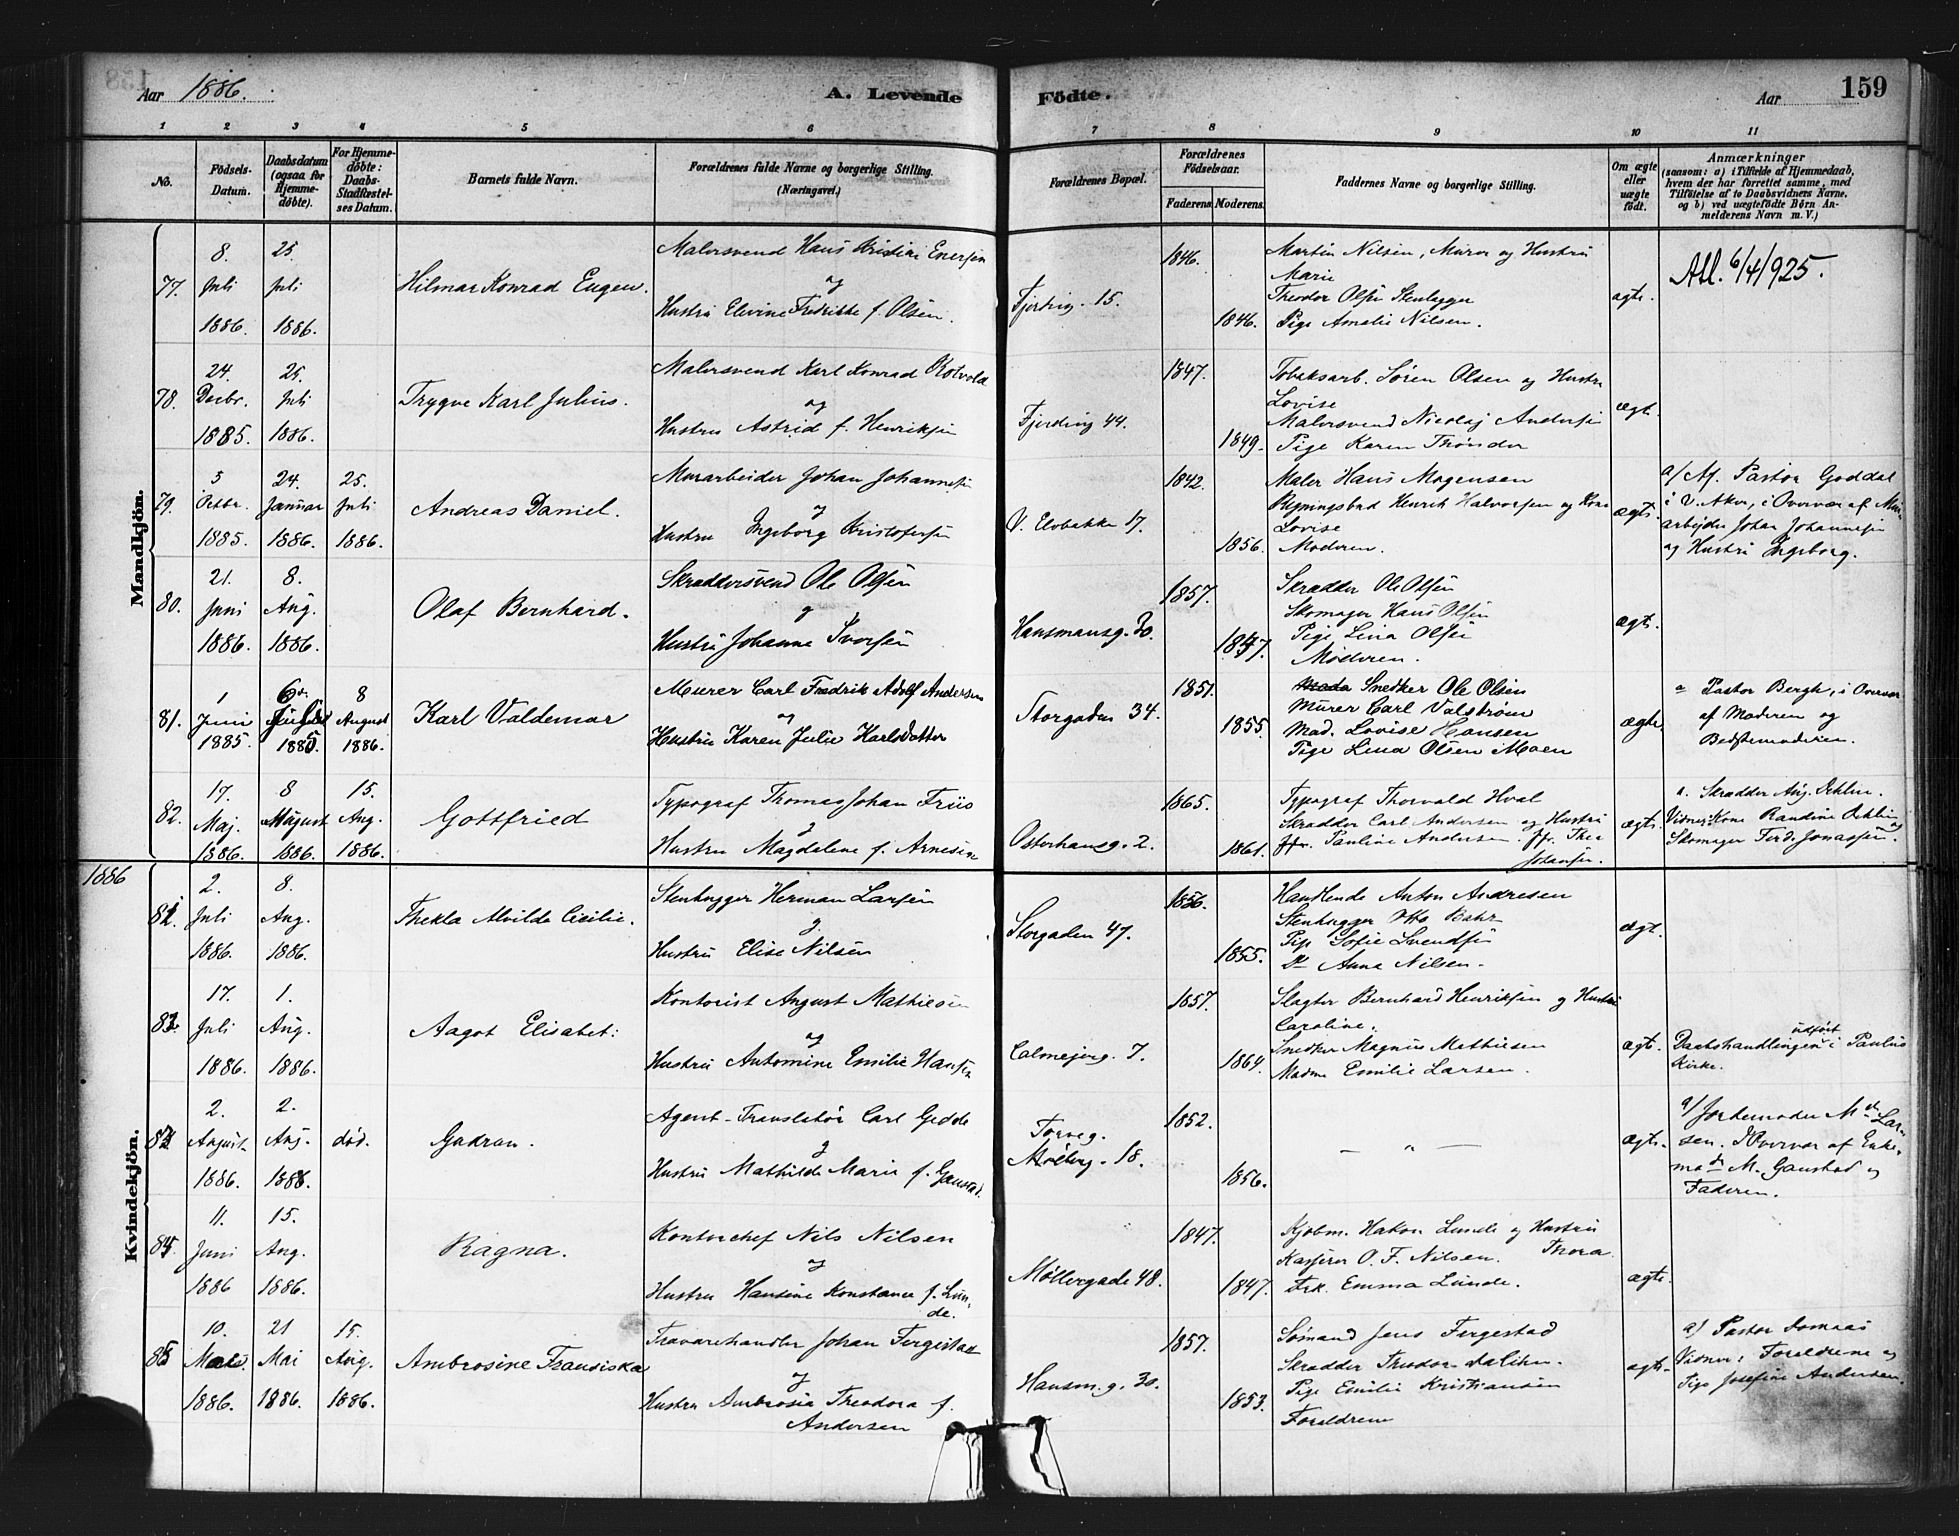 Aar 1886.
A. Levende Födte.
Aar
159
1 2 3 4 5 6 7 8 9 10 11
No.
Födsels-Datum.
Daabsdatum (ogsaa for Hjemme-döbte).
For Hjemme-döbte: Daabs-Stadfæstel-ses Datum.
Barnets fulde Navn.
Forældrenes fulde Navne og borgerlige Stilling. (Næringsvei.)
Forældrenes Bopæl.
Forældrenes Födselsaar.
Faderens. Moderens.
Faddernes Navne og borgerlige Stilling.
Om ægte eller uægte födt.
Anmærkninger
(saasom: a) i Tilfælde af Hjemmedaab,
hvem der har forrettet samme, med
Tilföielse af to Daabsvidners Navne,
og b) ved uægtefödte Börn An-
melderens Navn m. V.)
Mandkjön.
77. 8. Juli 1886. 25. Juli 1886.
Hilmar Konrad Eugen.
Malersvend Hans Kristian Enersen
og
Hustru Elevine Fredrikke f. Olsen.
Fjerding. 15.
1846. 1846.
Martin Nilsen, Murer og Hustru
Marie
Theodor Olsen Stenhugger
Pige Amalie Nilsen.
ægte.
Att. 6/4/925.
78. 24. Decbr. 1885. 25. Juli 1886.
Trygve Karl Julius.
Malersvend Karl Konrad Rotvold
og
Hustru Astrid f. Henriksen
Fjerding 44.
1847. 1849.
Tobaksarb. Søren Olsen og Hustru
Lovise
Malersvend Nicolaj Andersen
Pige Karen Thrønder
ægt.
79. 5 Octbr. 1885. 24. Januar 1886. 25. Juli 1886.
Andreas Daniel.
Murarbeider Johan Johannesen
og
Hustru Ingeborg Kristofersen
V. Elvbakke 17.
1842. 1856.
Maler Hans Mogensen
Henrik Halvorsen og Kone
Lovise
Moderen.
ægte.
a/ Af Pastor Goddal
i V. Aker, i Overvær af Mur-
arbejder Johan Johannesen
og Hustru Ingeborg.
80. 21. Juni 1886. 8. Aug. 1886.
Olaf Bernhard.
Skræddersvend Ole Olsen
og
Hustru Johanne Iversen
Hausmansg. 30.
1857. 1857.
Skrædder Ole Olsen
Skomager Hans Olsen
Pige Lina Olsen
Moderen.
ægt.
81. 1 Juni 1885. 6te Juli 1885. 8 August 1886.
Karl Valdemar
Murer Carl Fredrik Adolf Andersen
og
Hustru Karen Julie Karlsdatter
Storgaden 34.
1851. 1855.
Snedker Ole Olsen
Murer Carl Valstrøm
Mad. Lovise Hansen
Pige Lina Olsen Moen
ægte.
a Pastor Bergh, i Overvær
af Moderen og
Bedstemoderen.
82. 17. Maj. 1886. 8 August 1886. 15. Aug. 1886.
Gottfried
Typograf Thomas Johan Friis
og
Hustru Magdalene f. Arnesen
Osterhausg. 2.
1865. 1861.
Typograf Thorvald Hval
Skrædder Carl Andersen og Hustru
Pauline Andersen. Jfr. Thea
Johansen.
ægte.
a. Skrædder Aug. Dehlin.
Vidner: Kone Randine Dehlin og
Skomager Ferd. Jonassen.
1886
Kvindekjön.
81. 2. Juli 1886. 8. Aug. 1886.
Thekla Alvilde Cicilie.
Stenhugger Herman Larsen
og
Hustru Elise Nilsen
Storgaden 47.
1856. 1855.
Handlende Anton Andresen
Stenhugger Otto Bahr
Pige Sofie Svendsen
Do Anna Nilsen.
ægt.
82. 17. Juli 1886. 1. Aug. 1886.
Aagot Elisabet.
Kontorist August Mathiesen
og
Hustru Antomine Emilie Hansen
Calmejerg. 7.
1857. 1864.
Slagter Bernhard Henriksen og Hustru
Caroline.
Snedker Magnus Mathiesen
Madme Emilie Larsen.
ægt.
Daabshandlingen udført i Paulus
Kirke.
83. 2. August 1886. 2. Aug. 1886. død.
Gudrun.
Agent-Translatør Carl Gedde
og
Hustru Mathilde Marie f. Gaustad.
Torveg.
Mølleg. 18.
1852. 1856.
— " —
ægte.
a/ Jordemoder Md. Lar-
sen. I Overvær af Enke-
mad. M. Gaustad og
Faderen.
84. 11. Juni 1886 15. Aug. 1886.
Ragna.
Kontorchef Nils Nilsen
og
Hustru Hansine Konstance f. Lun-
de.
Møllergade 48.
1847. 1847.
Kjøbm. Hakon Lunde og Hustru
Thora
Kasserer O. F. Nilsen.
Frk. Emma Lunde.
ægte.
85. 10. Marts. 1886. 21 Mai 1886. 15. Aug. 1886.
Ambrosine Fransiska
Travarehandler Johan Fergestad
og
Hustru Ambrosia Theodora f.
Andersen
Hausm.g. 30.
1857. 1853.
Sømand Jens Fergestad
Skrædder Theodor Dahlin.
Pige Emilie Kristiansen
Forældrene
ægte.
a) Pastor Domaas
Vidner: Forældrene og
Pige Josefine Andersen.